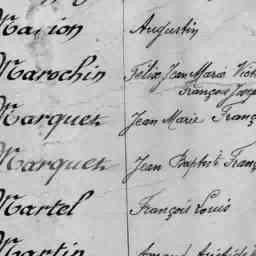 Marion Augustin
Marochin Félix Jean Marie
François
Marquet Jean Marie
Marquet Jean Baptiste
Martel François Louis
Martin Armand